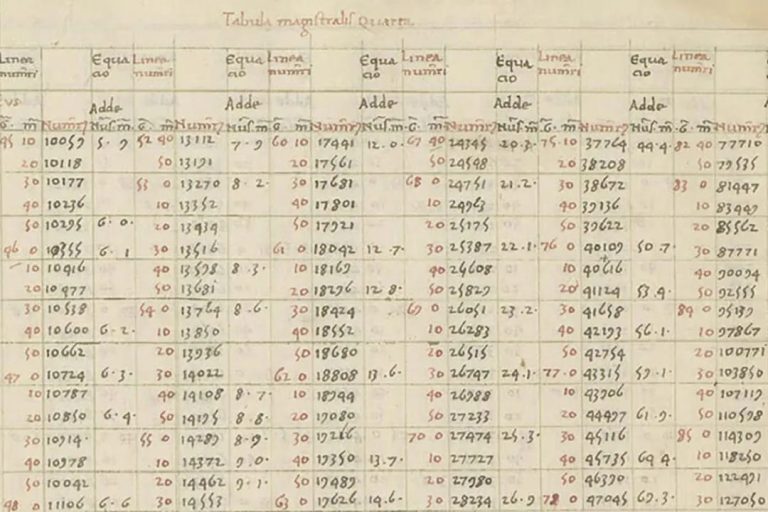 Tabula magistralis Quarta
Linea Equa Linea Equa Linea Equa Linea Equa Linea Equa Linea
numeri cio numeri cio numeri cio numeri cio numeri cio numeri
Adde Adde Adde Adde Adde
G. m̅ Numeri Nus. m̅. G. m̅ Numeri Nus. m̅. G. m̅ Numeri Nus. m̅. G. m̅ Numeri Nus. m̅. G. m̅ Numeri Nus. m̅. G. m̅ Numeri
45 10 10059 5·9 52 40 13112 7·9 60 10 17441 12·0 67 40 24345 20·3· 75·10 37764 44·4· 82 40 77710
20 10118 50 13191 20 17561 50 24548 20 38208 50 79535
30 10177 53 0 13270 8·2· 30 17681 68 0 24751 21·2· 30 38672 83 0 81447
40 10236 10 13352 40 17801 10 24963 40 39136 10 83449
50 10295 6·0· 20 13434 50 17921 20 25175 50 39622 20 85562
46 0 10355 6·1 30 13516 61 0 18042 12·7· 30 25387 22·1· 76 0 40109 50·7· 30 87771
10 10416 40 13598 8·3· 10 18169 40 25608 10 40616 40 90094
20 10477 50 13681 20 18296 12·8· 50 25829 20 41124 53·4· 50 92555
30 10538 54 0 13764 8·6· 30 18424 69 0 26051 23·2· 30 41658 84 0 95139
40 10600 6·2· 10 13850 40 18552 10 26283 40 42193 56·1· 10 97867
50 10662 20 13936 50 18680 20 26515 50 42754 20 100771
47 0 10724 6·3· 30 14022 62 0 18808 13·6· 30 26747 24·1· 77·0 43315 59·1· 30 103850
10 10787 40 14108 8·7· 10 18944 40 26988 10 43906 40 107119
20 10850 6·4· 50 14195 8·8· 20 19080 50 27233 20 44497 61·9· 50 110598
30 10914· 55 0 14289 8·9· 30 19216 70 0 27474 25·3· 30 45116 85 0 114309
40 10978 10 14372 9·0· 40 19350 13·7· 10 27727 40 45735 64·4· 10 118250
50 10042 20 14462 9·1· 50 19489 20 27980 50 46390 20 122491
48 0 11106 6·6 30 14553 63 0 19626 14·6· 30 28234 26·9 78 0 47045 69·3· 30 127050